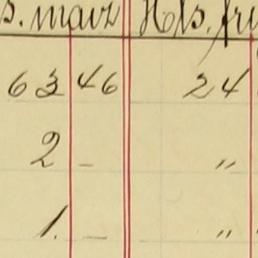 s. maiz Hls. fri
63 46 24
2 — "
1. — "